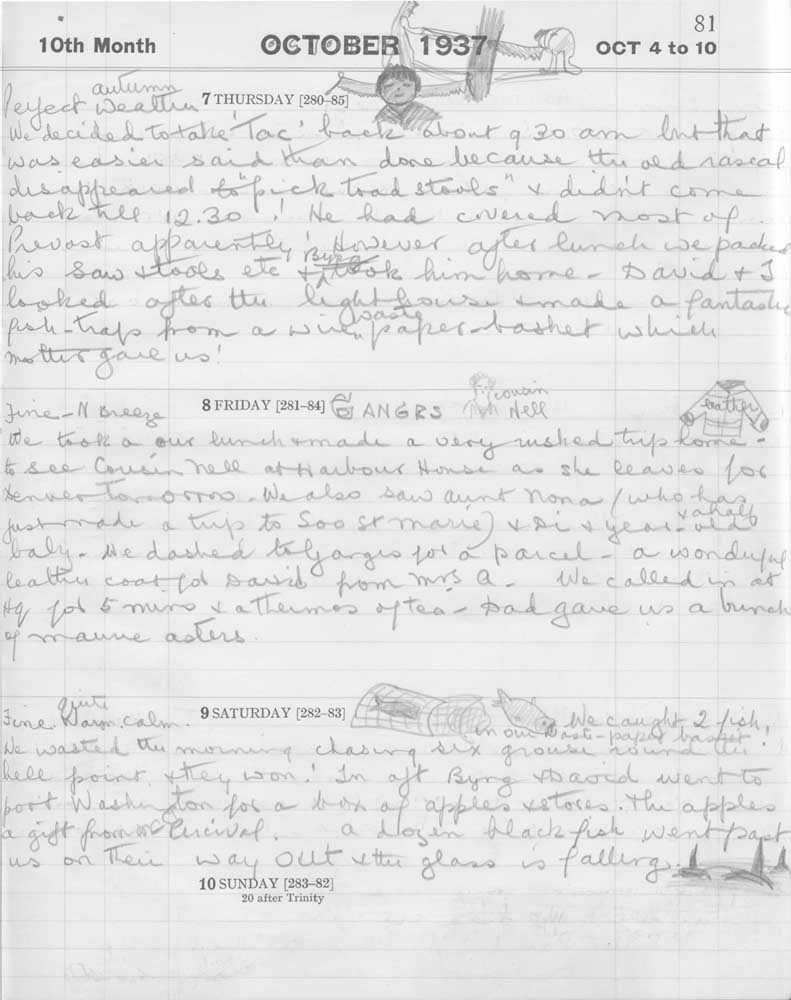 81
10th Month
OCTOBER 1937
OCT 4 to 10
autumn
Perfect Weather
7 THURSDAY [280–85]
We decided to take 'Tac' back about 9 30 am but that
was easier said than done because the old rascal
disappeared to "pick toad stools" & didn't come
back till 12.30 ! He had covered most of
Prevost apparently! However after lunch we packed
Byng
his saw & tools etc & took him home – David & I
looked after the lighthouse & made a fantastic
waste
fish-trap from a wire paper-basket which
mother gave us!
8 FRIDAY [281–84]
GANGES
cousin
Nell
leather
Fine – N Breeze
We took our lunch & made a very rushed trip home –
to see Cousin Nell at Harbour House as she leaves for
Denver tomorrow. We also saw aunt Nona (who has
just made a trip to Soo St Marie) & Di & year-old
& a half
baby – We dashed to Ganges for a parcel – a wonderful
leather coat for David from Mrs A – We called in at
HQ for 5 mins & a thermos of tea – Dad gave us a bunch
of mauve asters.
quite
Fine. Warm. calm.
9 SATURDAY [282–83]
We caught 2 fish
in our waste-paper basket!
We wasted the morning chasing six grouse round the
hell point & they won! In aft Byng & David went to
port Washington for a box of apples & stores. The apples
a gift from Mr Percival. a dozen blackfish went past
us on their way out & the glass is falling.
10 SUNDAY [283–82]
20 after Trinity